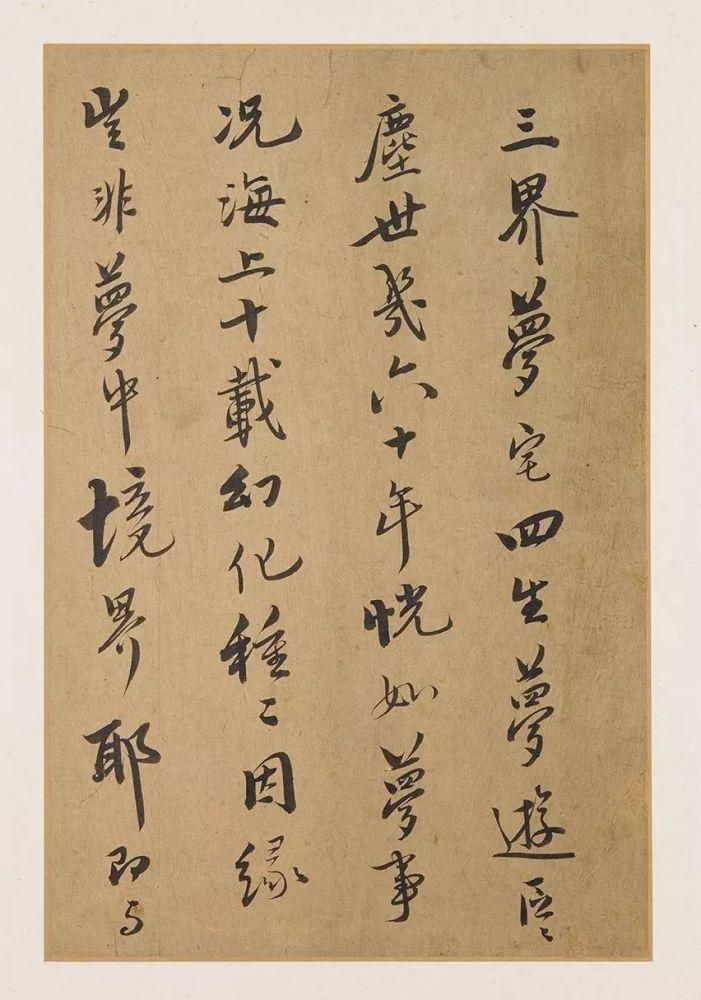 三界夢宅四生夢遊區〻
塵世幾六十年恍如夢事
况海上十載幻化種〻因縁
豈非夢中境界耶即与